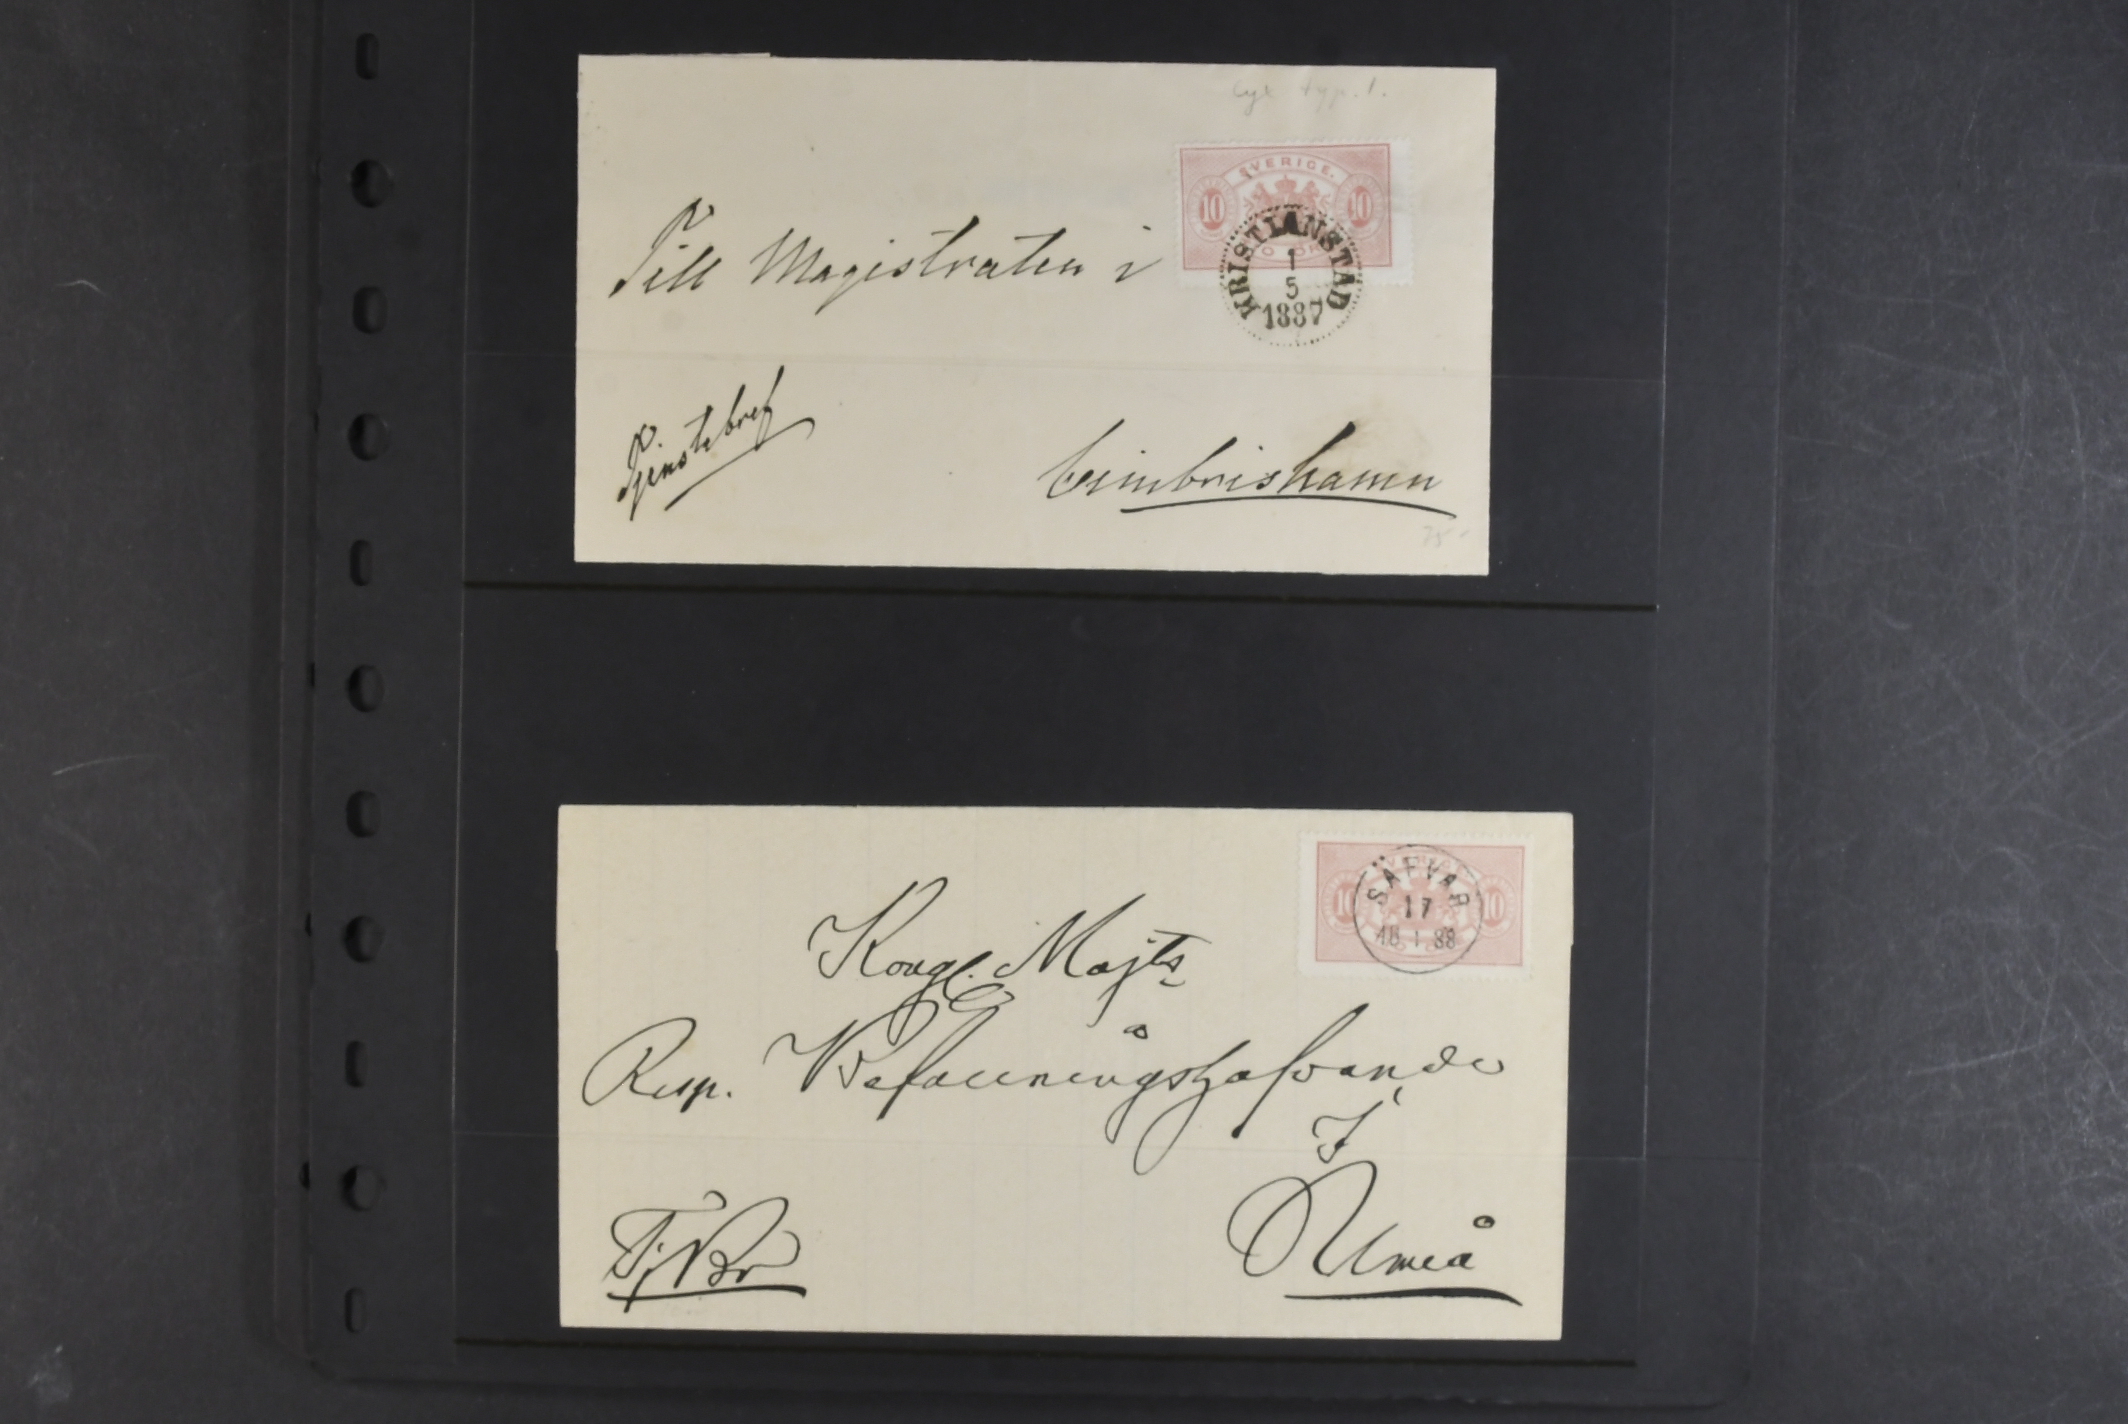 Cyl typ. 1.
SVERIGE.
10 10
KRISTIANSTAD
1
5
1887
Till Magistraten i
Tjenstebref
Cimbrishamn
75-
10 10
SÄFVAR
17
18 1 88
Kongl. Majts
Resp. Befallningshafvande
I
Umeå
Tj Br